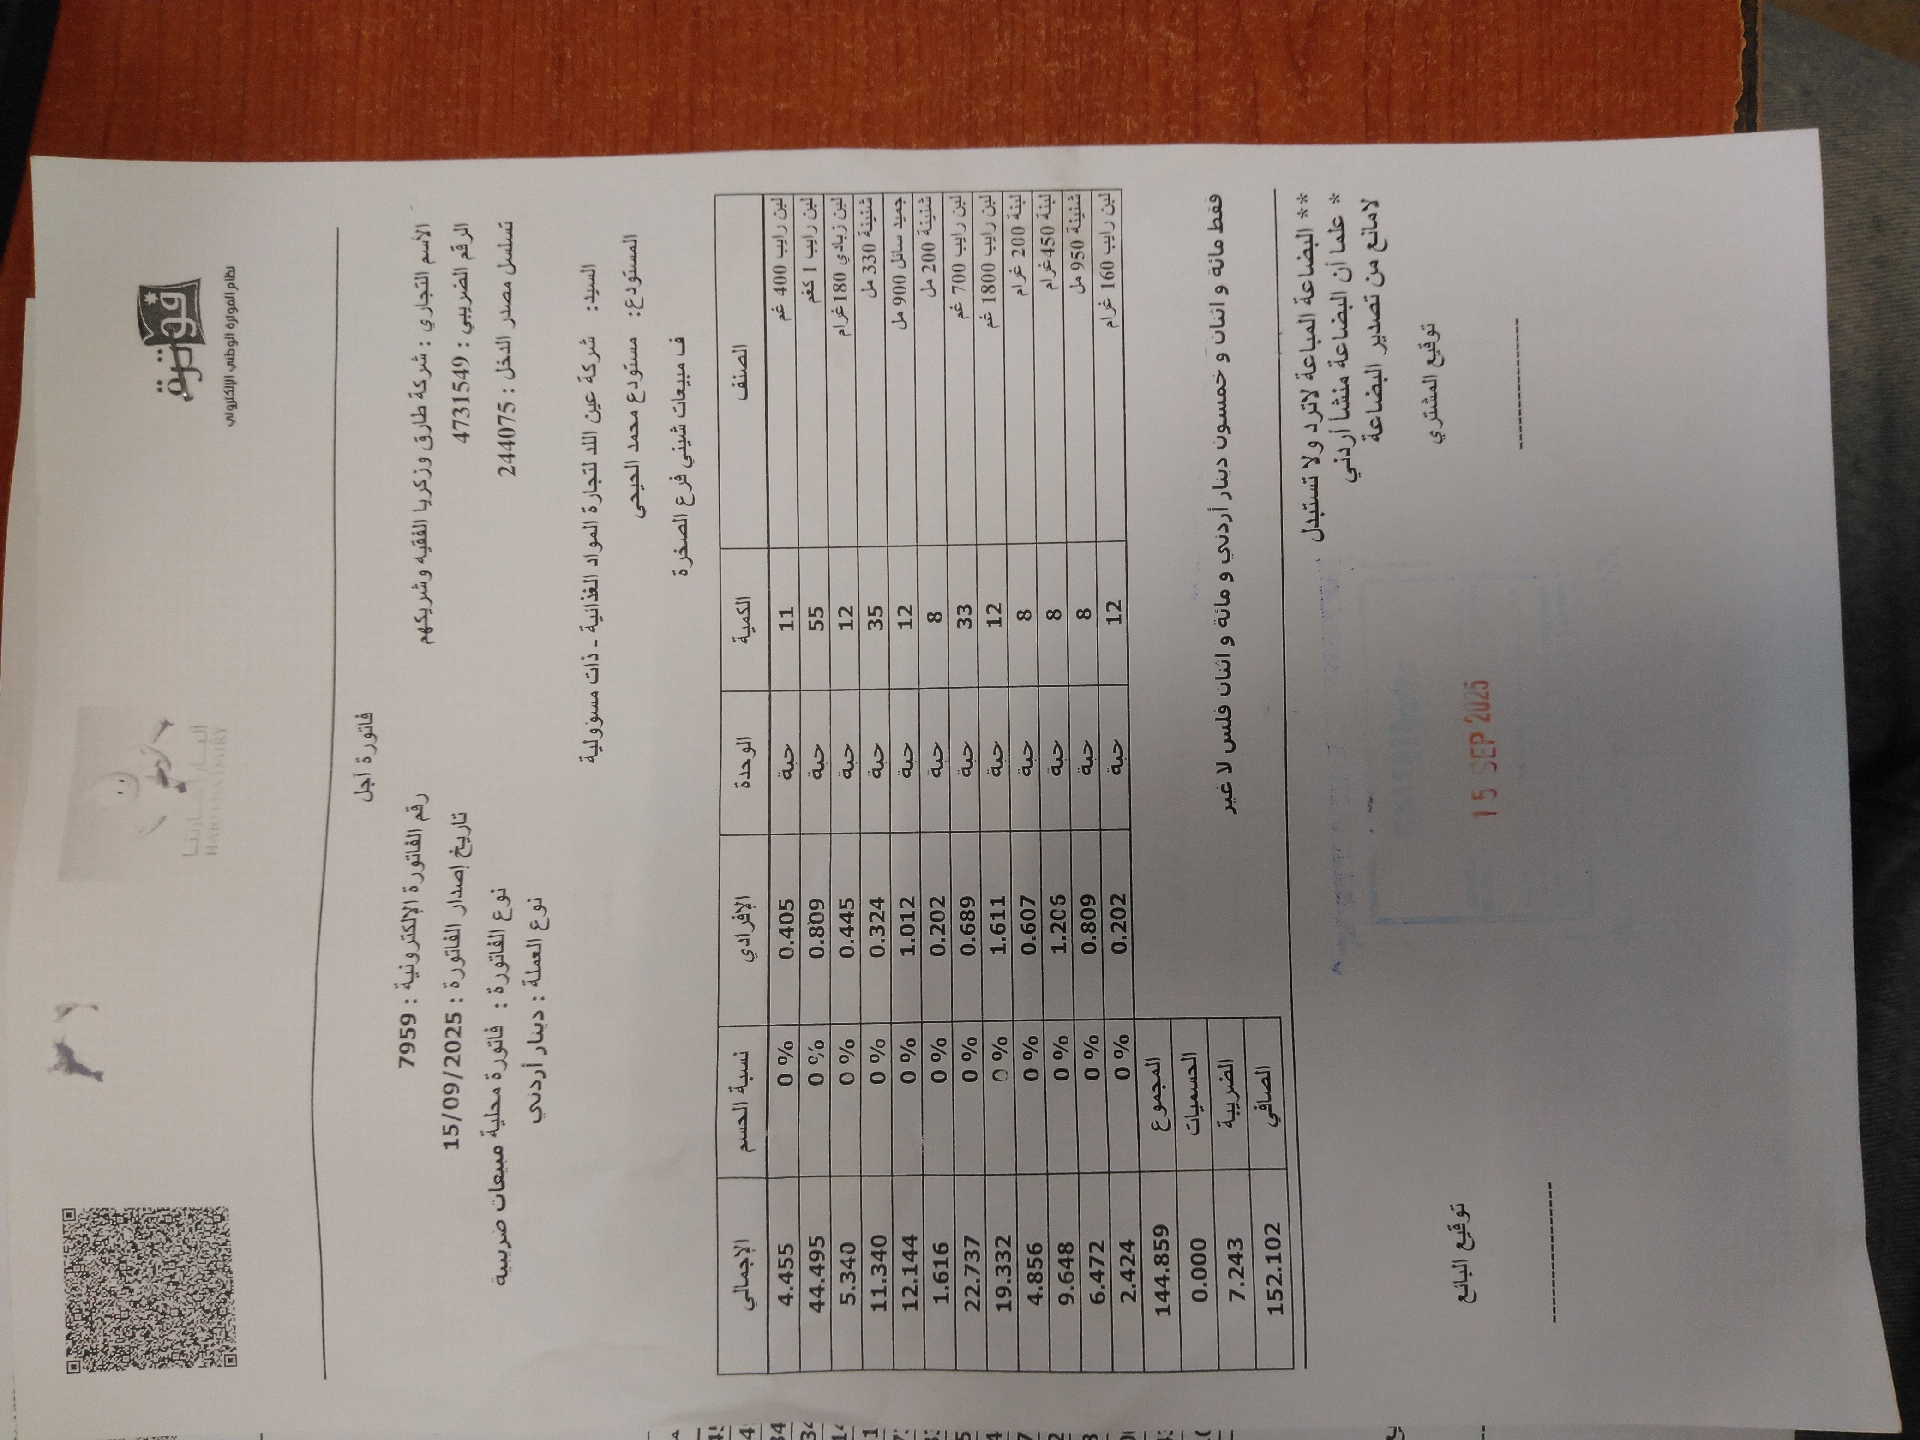 فوترة
نظام الفوترة الوطني الإلكتروني
HAMOUDA DAIRY
فاتورة آجل
الأسم التجاري : شركة طارق وزكريا الفقيه وشريكهم
رقم الفاتورة الإلكترونية : 7959
الرقم الضريبي : 47731549
تاريخ إصدار الفاتورة : 15/09/2025
تسلسل مصدر الدخل : 244075
نوع الفاتورة : فاتورة محلية مبيعات ضريبية
نوع العملة : دينار أردني
السيد: شركة عين اللد لتجارة المواد الغذائية - ذات مسؤولية
المستودع: مستودع محمد الحيحي
ف مبيعات شيني فرع الصخرة
الصنف الكمية الوحدة الإفرادي نسبة الحسم الإجمالي
لبن رايب 400 غم 11 حبة 0.405 0 % 4.455
لبن رايب 1 كغم 55 حبة 0.809 0 % 44.495
لبن زبادي 180غرام 12 حبة 0.445 0 % 5.340
شنينة 330 مل 35 حبة 0.324 0 % 11.340
جميد سائل 900 مل 12 حبة 1.012 0 % 12.144
شنينة 200 مل 8 حبة 0.202 0 % 1.616
لبن رايب 700 غم 33 حبة 0.689 0 % 22.737
لبن رايب 1800 غم 12 حبة 1.611 0 % 19.332
لبنة 200 غرام 8 حبة 0.607 0 % 4.856
لبنة 450غرام 8 حبة 1.206 0 % 9.648
شنينة 950 مل 8 حبة 0.809 0 % 6.472
لبن رايب 160 غرام 12 حبة 0.202 0 % 2.424
المجموع 144.859
الحسميات 0.000
الضريبة 7.243
الصافي 152.102
فقط مائة و اثنان و خمسون دينار أردني و مائة و اثنان فلس لا غير
** البضاعة المباعة لاترد ولا تستبدل
* علما أن البضاعة منشأ أردني
لامانع من تصدير البضاعة
توقيع المشتري
توقيع البائع
15 SEP 2025